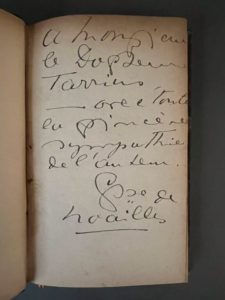 à Monsieur
le Docteur
Tarrius
— avec toute
la sincère
sympathie
de l'auteur.
Ctsse de
Noailles